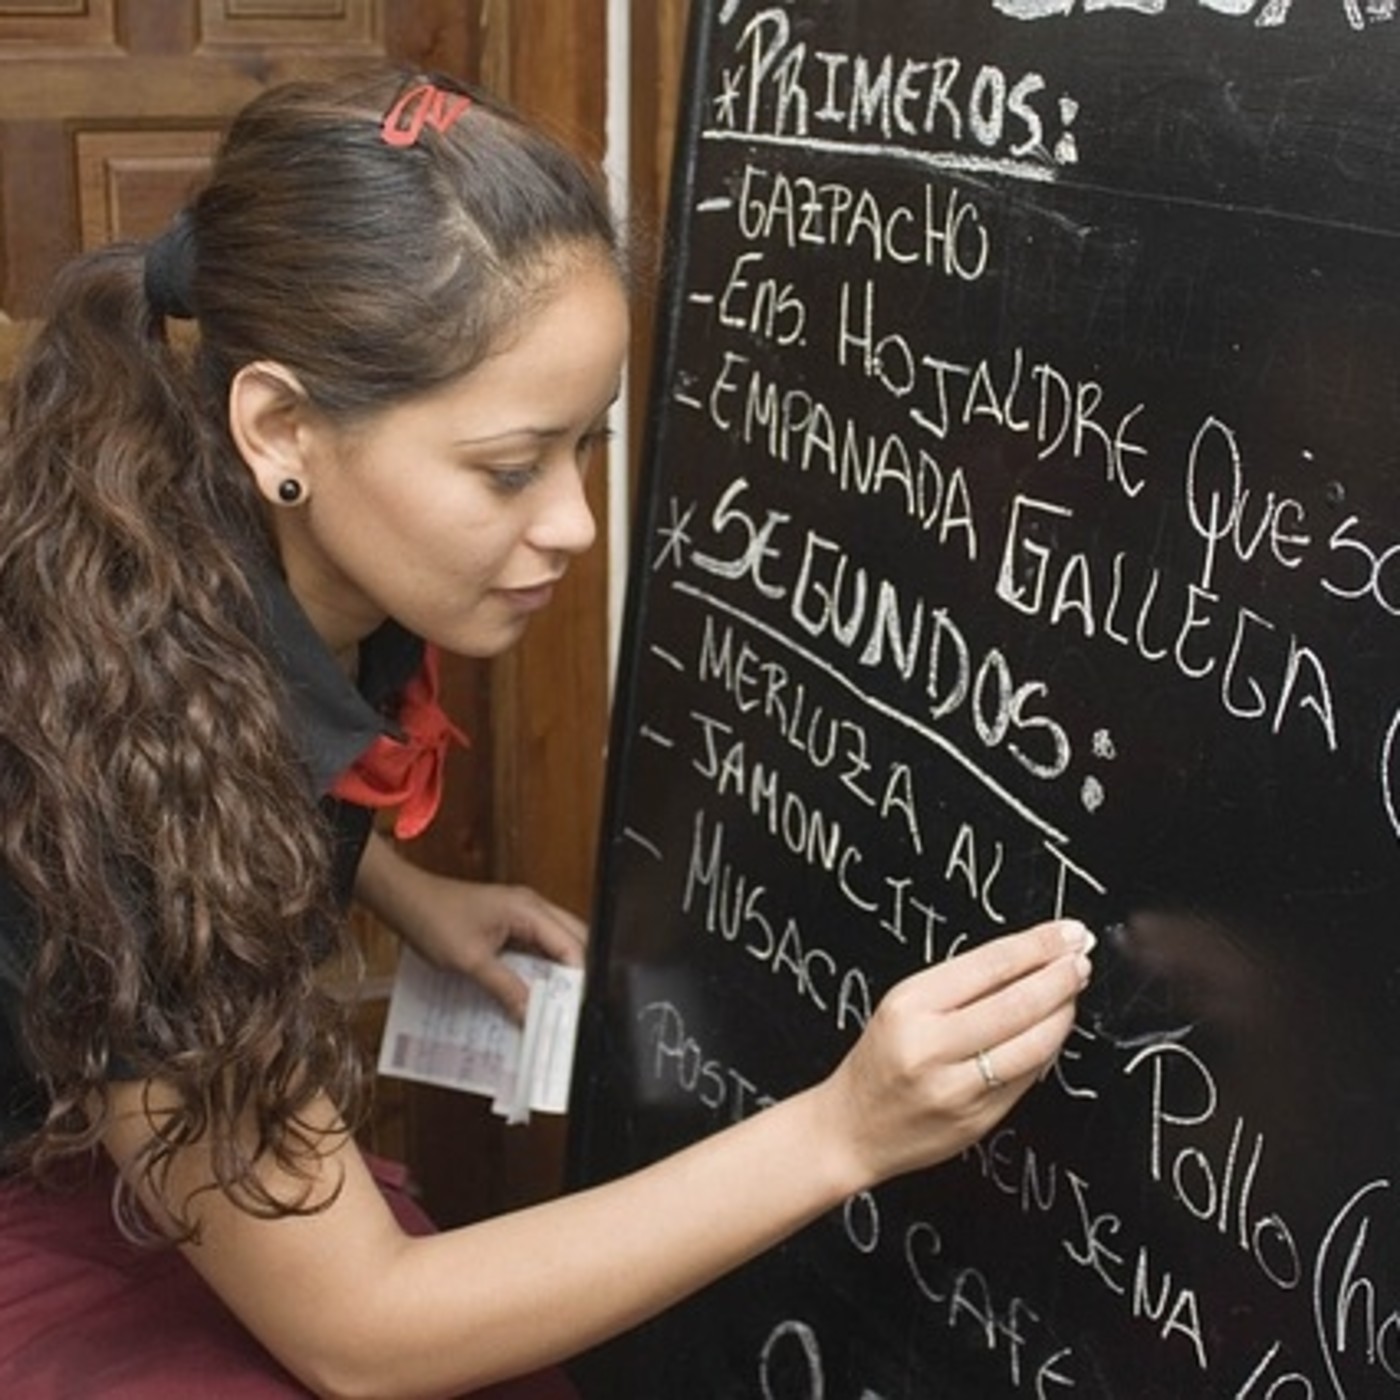 *PRIMEROS:
-GAZPACHO
-Ens. HOJALDRE QUESO
-EMPANADA GALLEGA (
*SEGUNDOS:
- MERLUZA AL T
- JAMONCITO DE Pollo (ho
- MUSACA RENJENA
POST O CAFE